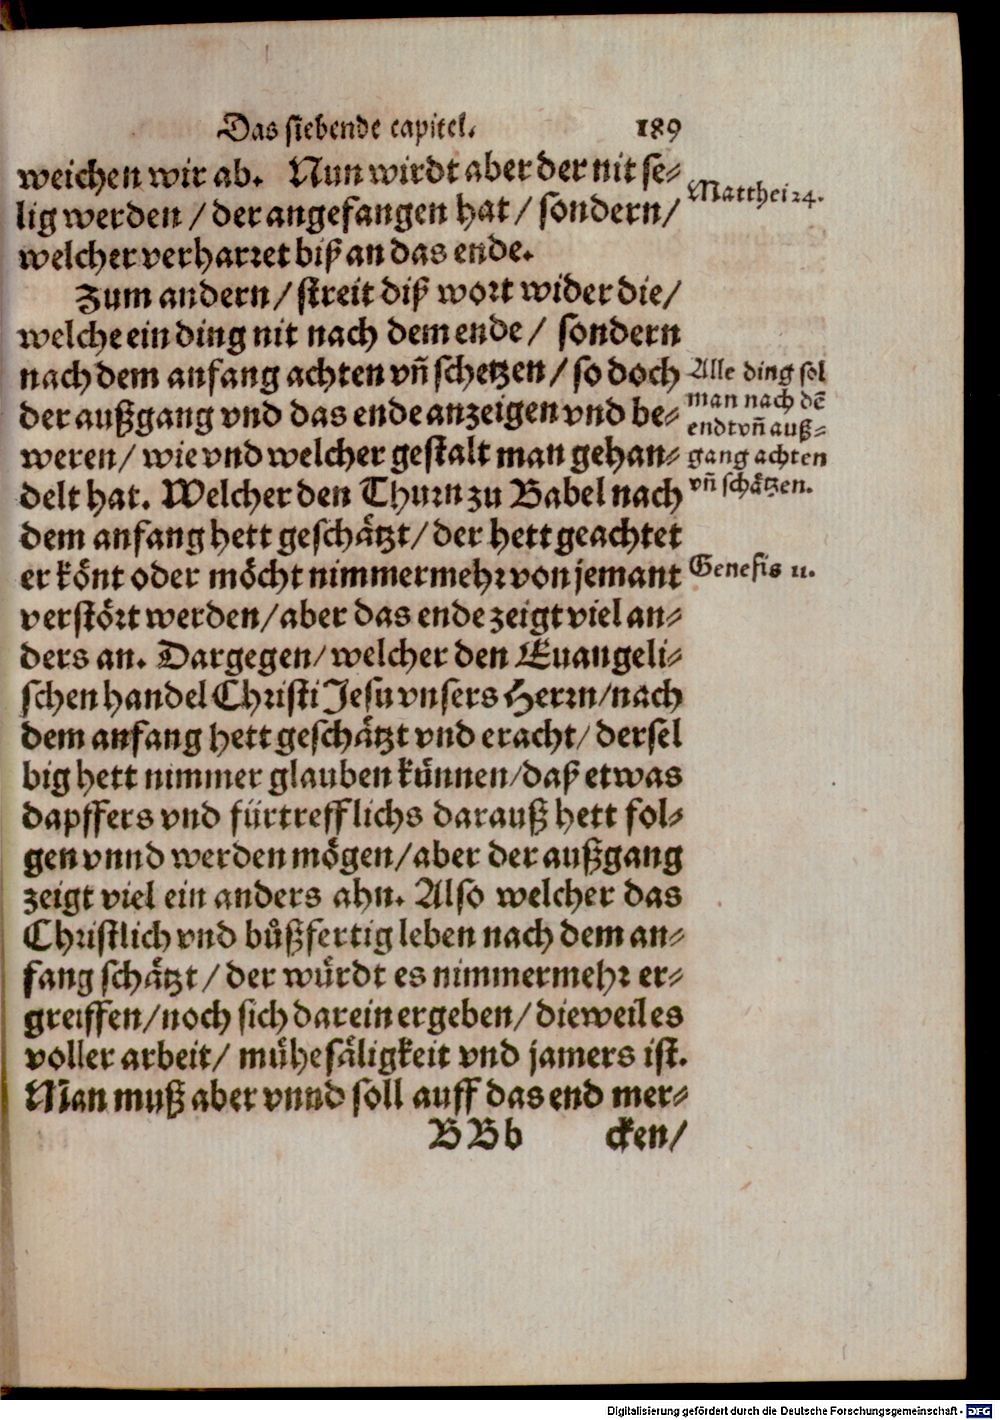 Das siebende capitel. 189
weichen wir ab. Nun wirdt aber der nit se-
lig werden / der angefangen hat / sondern /
welcher verharret biß an das ende.
Matthei 24.
Zum andern / streit diß wort wider die /
welche ein ding nit nach dem ende / sondern
nach dem anfang achten vñ schetzen / so doch
der außgang vnd das ende anzeigen vnd be-
weren / wie vnd welcher gestalt man gehan-
delt hat. Welcher den Thurn zu Babel nach
dem anfang hett geschätzt / der hett geachtet
er könt oder möcht nimmermehr von jemant
verstört werden / aber das ende zeigt viel an-
ders an. Dargegen / welcher den Euangeli-
schen handel Christi Jesu vnsers Herrn / nach
dem anfang hett geschätzt vnd eracht / dersel
big hett nimmer glauben künnen / daß etwas
dapffers vnd fürtrefflichs darauß hett fol-
gen vnnd werden mögen / aber der außgang
zeigt viel ein anders ahn. Also welcher das
Christlich vnd bůßfertig leben nach dem an-
fang schätzt / der würdt es nimmermehr er-
greiffen / noch sich darein ergeben / dieweil es
voller arbeit / mühesäligkeit vnd jamers ist.
Man muß aber vnnd soll auff das end mer-
Alle ding sol
man nach dē
endt vñ auß-
gang achten
vñ schätzen.
Genesis 11.
BBb cken /
Digitalisierung gefördert durch die Deutsche Forschungsgemeinschaft - DFG